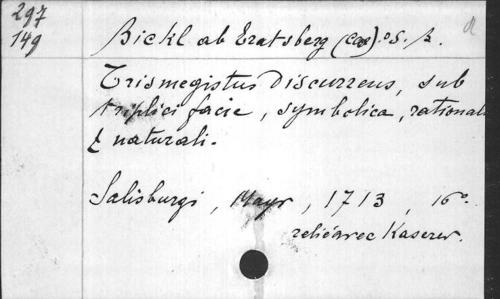 297
149
Bickl ab Eratsberg (Cas). O.S.B.
Trismegistus Discurrens, sub
triplici facie, symbolica, rational
& naturali.
Salisburgi, Mayr, 1713, 16o
relié avec Kaserer.